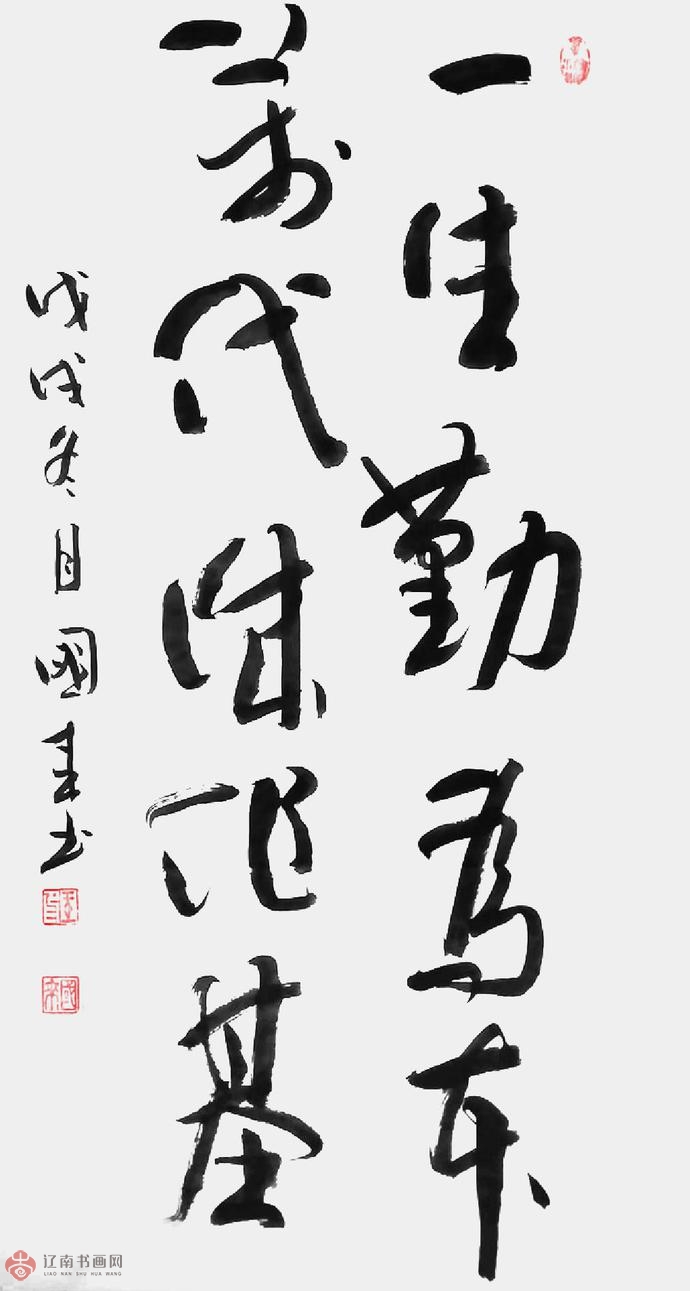 一生勤為本
萬代誠作基
戊戌冬月國来书
辽南书画网
LIAO NAN SHU HUA WANG